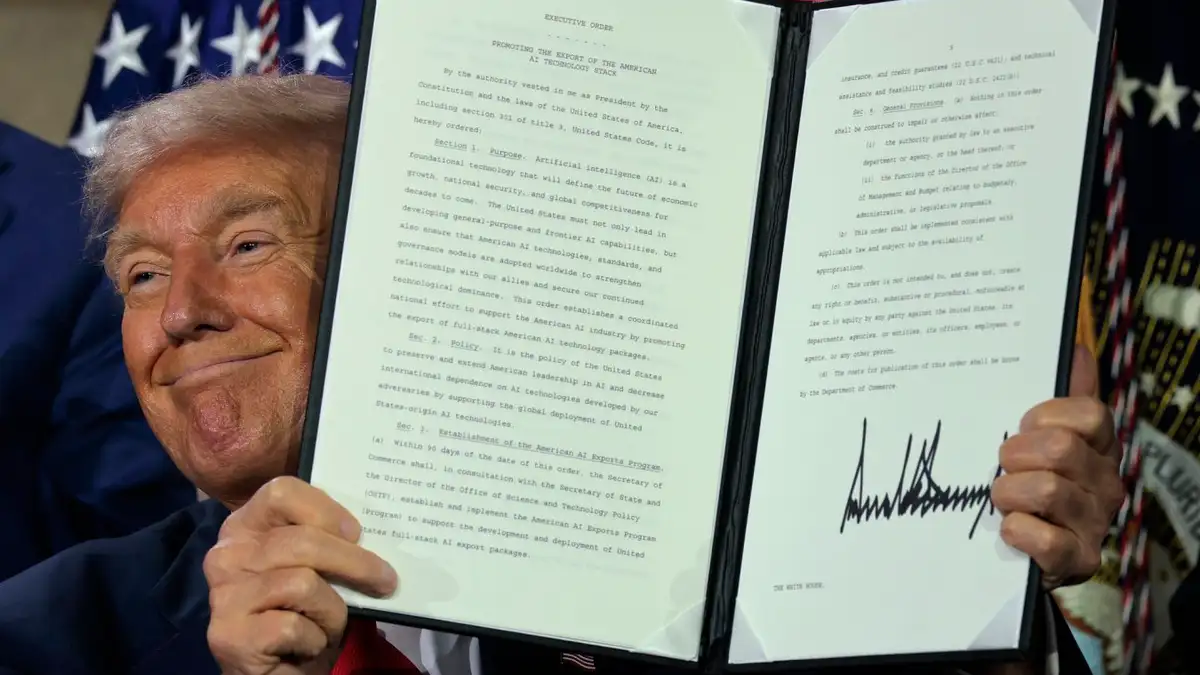 EXECUTIVE ORDER
- - - - - - -
PROMOTING THE EXPORT OF THE AMERICAN
AI TECHNOLOGY STACK
By the authority vested in me as President by the
Constitution and the laws of the United States of America,
including section 301 of title 3, United States Code, it is
hereby ordered:
Section 1. Purpose. Artificial intelligence (AI) is a
foundational technology that will define the future of economic
growth, national security, and global competitiveness for
decades to come. The United States must not only lead in
developing general-purpose and frontier AI capabilities, but
also ensure that American AI technologies, standards, and
governance models are adopted worldwide to strengthen
relationships with our allies and secure our continued
technological dominance. This order establishes a coordinated
national effort to support the American AI industry by promoting
the export of full-stack American AI technology packages.
Sec. 2. Policy. It is the policy of the United States
to preserve and extend American leadership in AI and decrease
international dependence on AI technologies developed by our
adversaries by supporting the global deployment of United
States-origin AI technologies.
Sec. 3. Establishment of the American AI Exports Program.
(a) Within 90 days of the date of this order, the Secretary of
Commerce shall, in consultation with the Secretary of State and
the Director of the Office of Science and Technology Policy
(OSTP), establish and implement the American AI Exports Program
(Program) to support the development and deployment of United
States full-stack AI export packages.
insurance, and credit guarantees (22 U.S.C. 9621); and technical
assistance and feasibility studies (22 U.S.C. 2421(b)).
Sec. 6. General Provisions. (a) Nothing in this order
shall be construed to impair or otherwise affect:
(i) the authority granted by law to an executive
department or agency, or the head thereof; or
(ii) the functions of the Director of the Office
of Management and Budget relating to budgetary,
administrative, or legislative proposals.
(b) This order shall be implemented consistent with
applicable law and subject to the availability of
appropriations.
(c) This order is not intended to, and does not, create
any right or benefit, substantive or procedural, enforceable at
law or in equity by any party against the United States, its
departments, agencies, or entities, its officers, employees, or
agents, or any other person.
(d) The costs for publication of this order shall be borne
by the Department of Commerce.
THE WHITE HOUSE,
PLUR